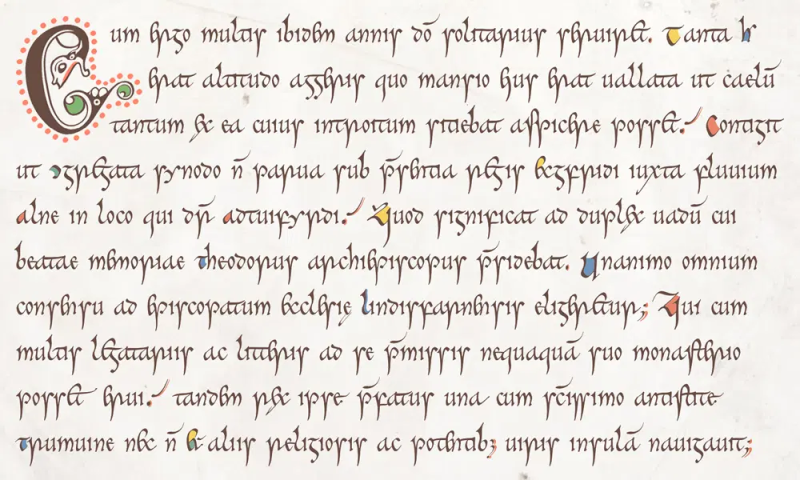 Cum ergo multis ibidem annis dō solitarius seruiret. Tanta hʼ
erat altitudo aggeris quo mansio eius erat uallata ut caelū
tantum ex ea cuius introitum sitiebat aspicere posset./ Contigit
ut ↄgregata synodo n̄ parua sub p̄sentia regis ecgfridi iuxta fluuium
alne in loco qui dr̄ adtuifyrdi./ Quod significat ad duplex uadū cui
beatae memoriae theodorus archiepiscopus p̄sidebat. Unanimo omnium
consensu ad episcopatum ecclesię lindisfarnensis eligeretur; Qui cum
multis legatariis ac litteris ad se p̄missis nequaquā suo monasterio
posset erui./ tandem rex ipse p̄fatus una cum sc̄issimo antistite
trumuine nec n̄ et aliis religiosis ac potentib; uiris insulā nauigauit;